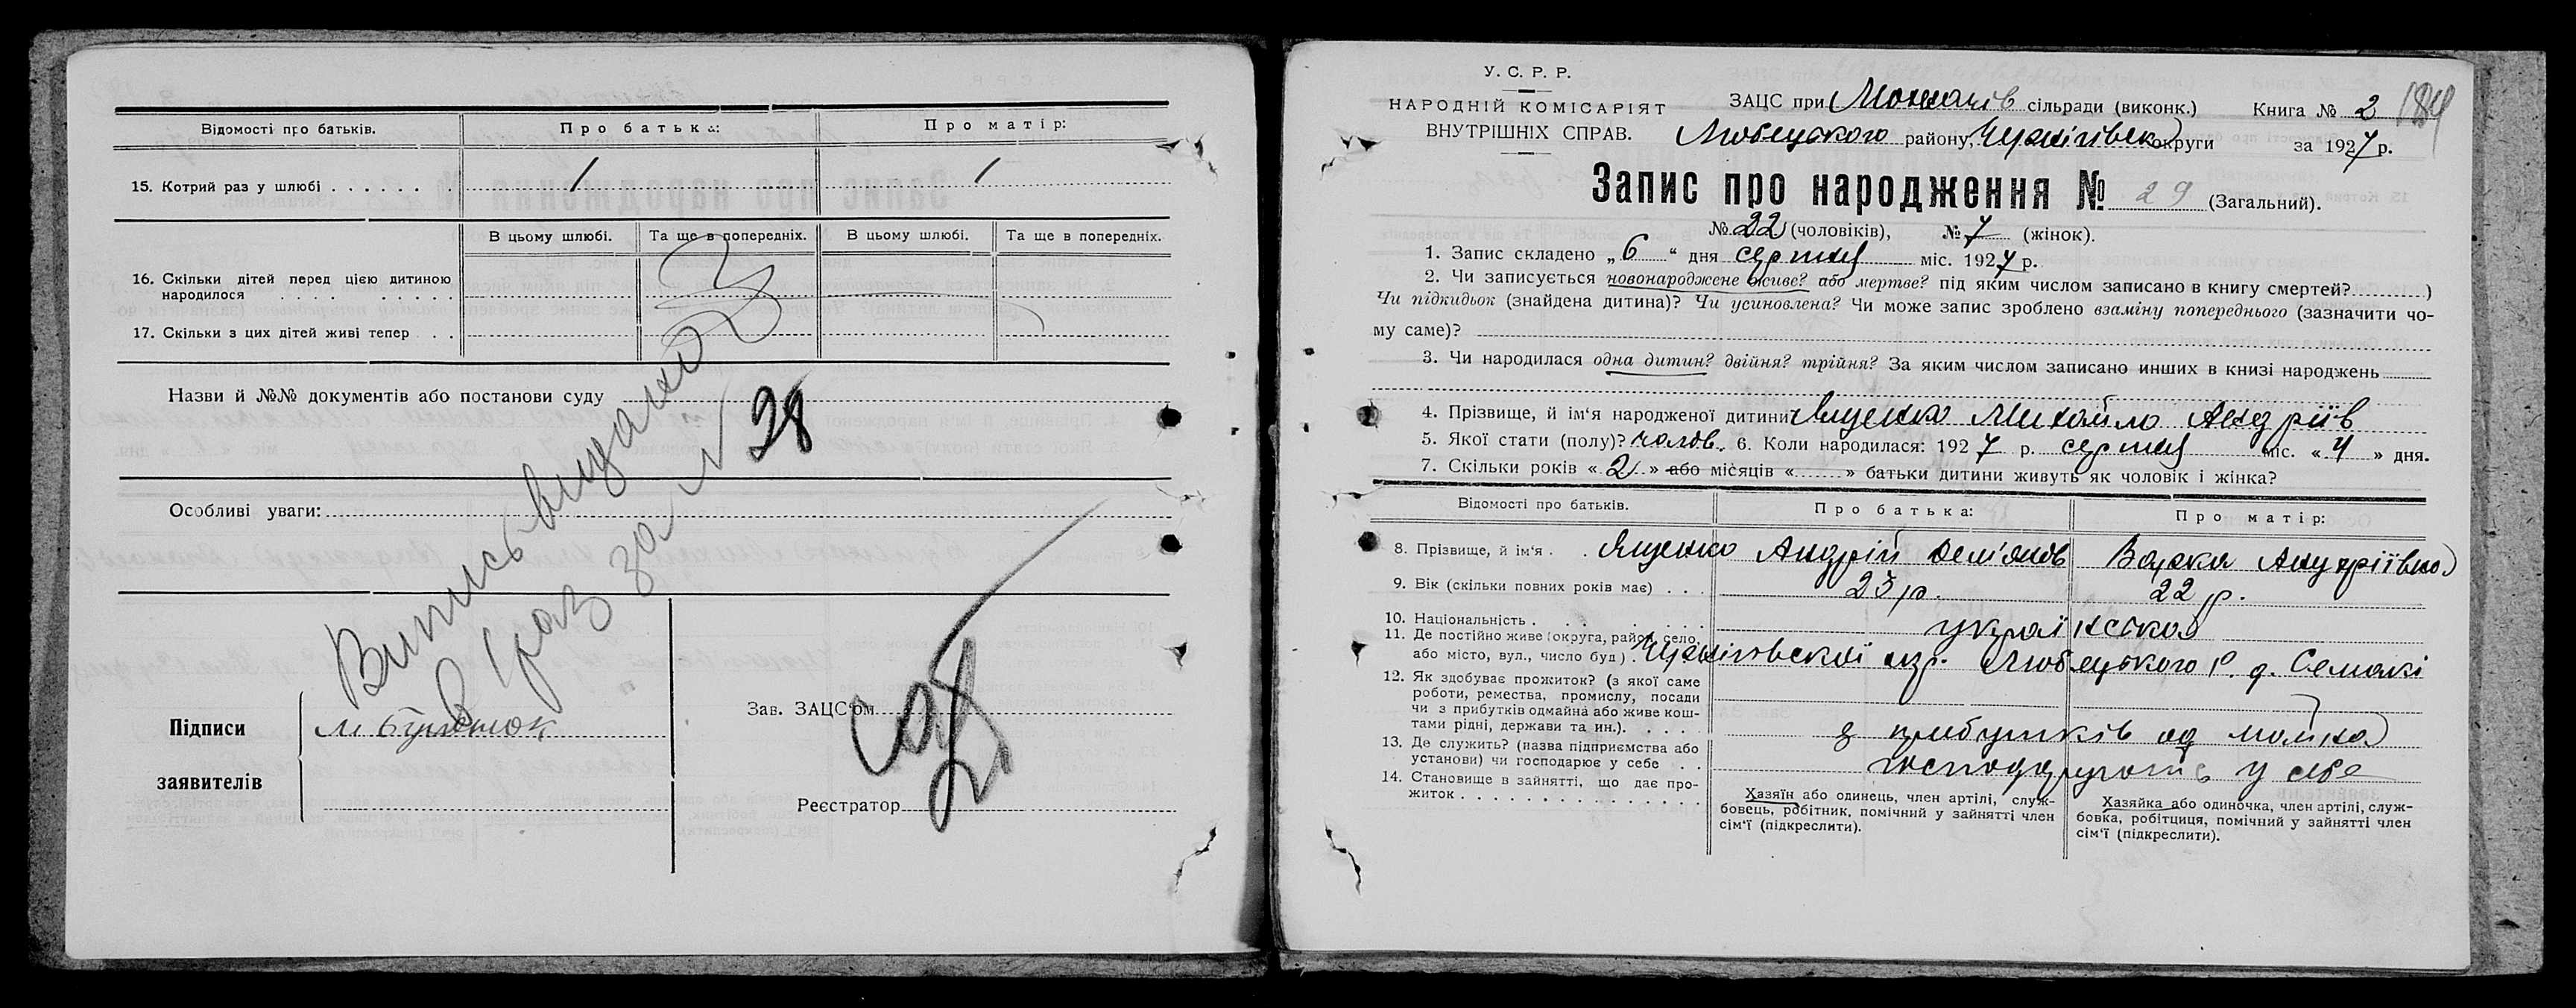 Відомості про батьків.
Про батька:
Про матір:
15. Котрий раз у шлюбі . . . . . . .
1
1
В цьому шлюбі.
Та ще в попередніх.
В цьому шлюбі.
Та ще в попередніх.
16. Скільки дітей перед цією дитиною
народилося . . . . . . . . .
17. Скільки з цих дітей живі тепер . . .
Назви й №№ документів або постанови суду
28
Особливі уваги:
Підписи
заявителів
Зав. ЗАЦС'ом
Реєстратор
У. С. Р. Р.
НАРОДНІЙ КОМІСАРІЯТ
ВНУТРІШНІХ СПРАВ.
ЗАЦС при сільради (виконк.)
Книга № 2
184
Любецького району, Чернігівськ округи
за 1927 р.
Запис про народження № 29 (Загальний).
№ 22 (чоловіків), № 7 (жінок).
1. Запис складено „ 6 “ дня серпня міс. 1927 р.
2. Чи записується новонароджене живе? або мертве? під яким числом записано в книгу смертей? )
Чи підкидьок (знайдена дитина)? Чи усиновлена? Чи може запис зроблено взаміну попереднього (зазначити чо-
му саме)?
3. Чи народилася одна дитин? двійня? трійня? За яким числом записано инших в книзі народжень
4. Прізвище, й ім'я народженої дитини Ященко Михайло Андріїв
5. Якої стати (полу)? чолов. 6. Коли народилася: 1927 р. серпня міс. « 4 » дня.
7. Скільки років « 2 » або місяців « » батьки дитини живуть як чоловік і жінка?
Відомості про батьків.
Про батька:
Про матір:
8. Прізвище, й ім'я . . Ященко Андрій Дем'янов
Варка Андріївна
9. Вік (скільки повних років має) . . .
23 р.
22 р.
10. Національність . . . . . . . .
українська
11. Де постійно живе (округа, район, село,
або місто, вул., число буд) . Чернігівської окр. Любецького р. д. Семаки
12. Як здобуває прожиток? (з якої саме
роботи, ремества, промислу, посади
чи з прибутків одмайна або живе кош-
тами рідні, держави та ин.). . . . .
з прибутків од майна
13. Де служить? (назва підприємства або
установи) чи господарює у себе . .
господарюють у себе
14. Становище в зайнятті, що дає про-
житок . . . . . . . . . . . . . . . .
Хазяїн або одинець, член артілі, служ-
бовець, робітник, помічний у зайнятті член
сім'ї (підкреслити).
Хазяйка або одиночка, член артілі, служ-
бовка, робітциця, помічний у зайнятті член
сім'ї (підкреслити).